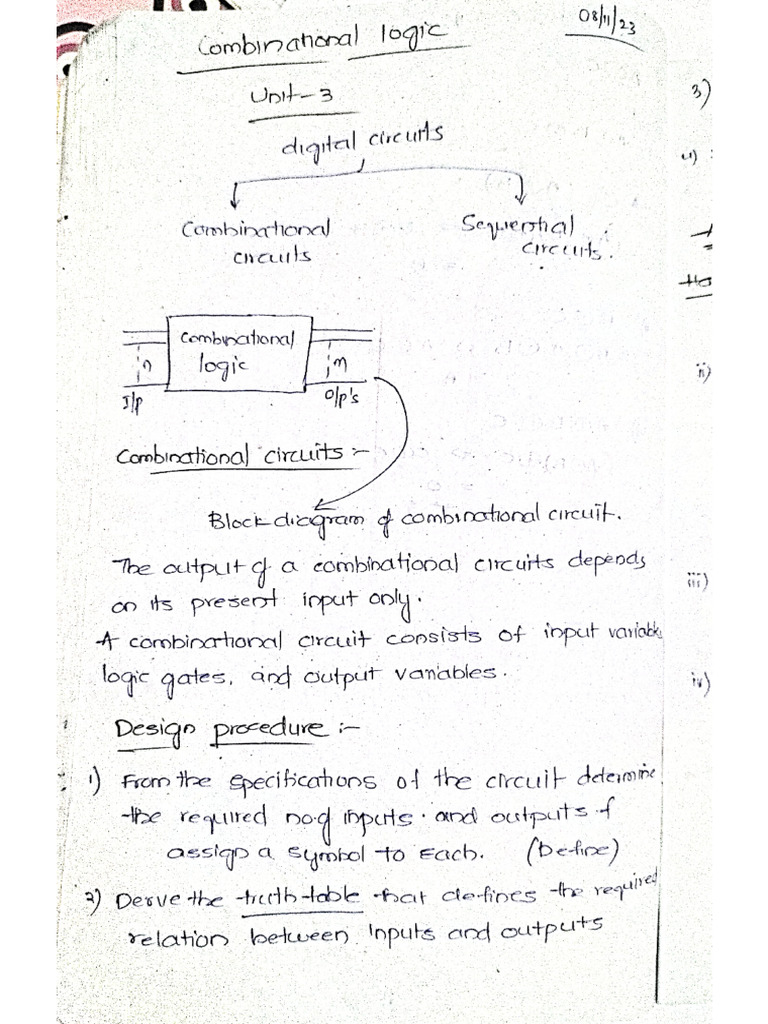 08/11/23
Combinational logic
Unit-3
digital circuits
Combinational
circuits
Sequential
circuits.
Combinational
logic
n
m
I/p
O/p's
Combinational circuits :-
Block diagram of combinational circuit.
The output of a combinational circuits depends
on its present input only.
A combinational circuit consists of input variable
logic gates, and output variables.
Design procedure :-
1) From the specifications of the circuit determine
the required no of inputs. and outputs &
assign a symbol to each. (Define)
2) Derve the truth-table that defines the required
relation between inputs and outputs
3)
4)
ii)
iii)
iv)